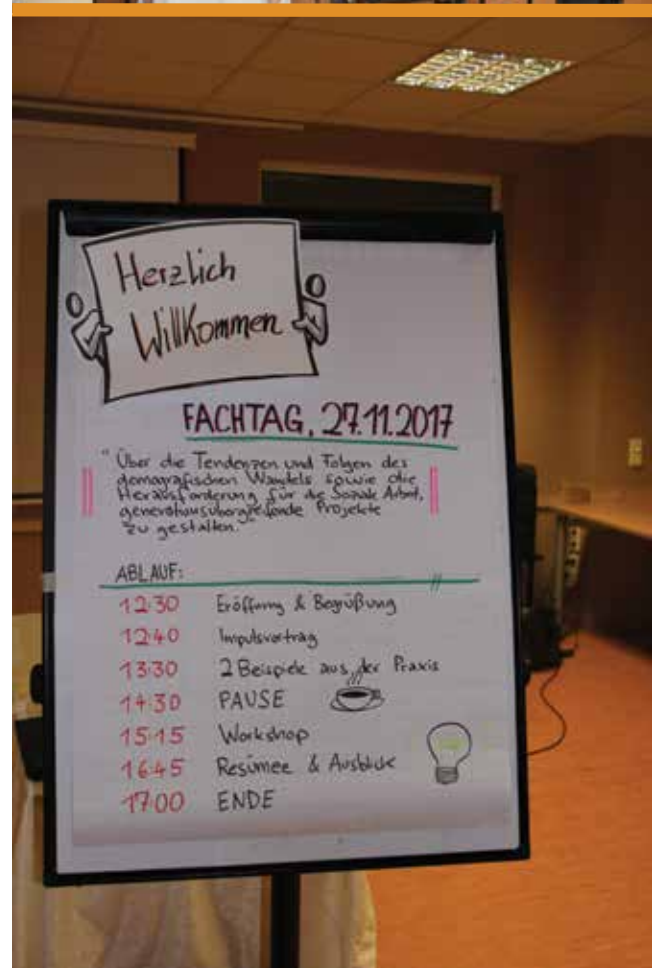 Herzlich
Willkommen
FACHTAG, 27.11.2017
"Über die Tendenzen und Folgen des
demografischen Wandels sowie die
Herausforderung für die Soziale Arbeit,
generationsübergreifende Projekte
zu gestalten."
ABLAUF:
12:30 Eröffnung & Begrüßung
12:40 Impulsvortrag
13:30 2 Beispiele aus der Praxis
14:30 PAUSE
15:15 Workshop
16:45 Resümee & Ausblick
17:00 ENDE